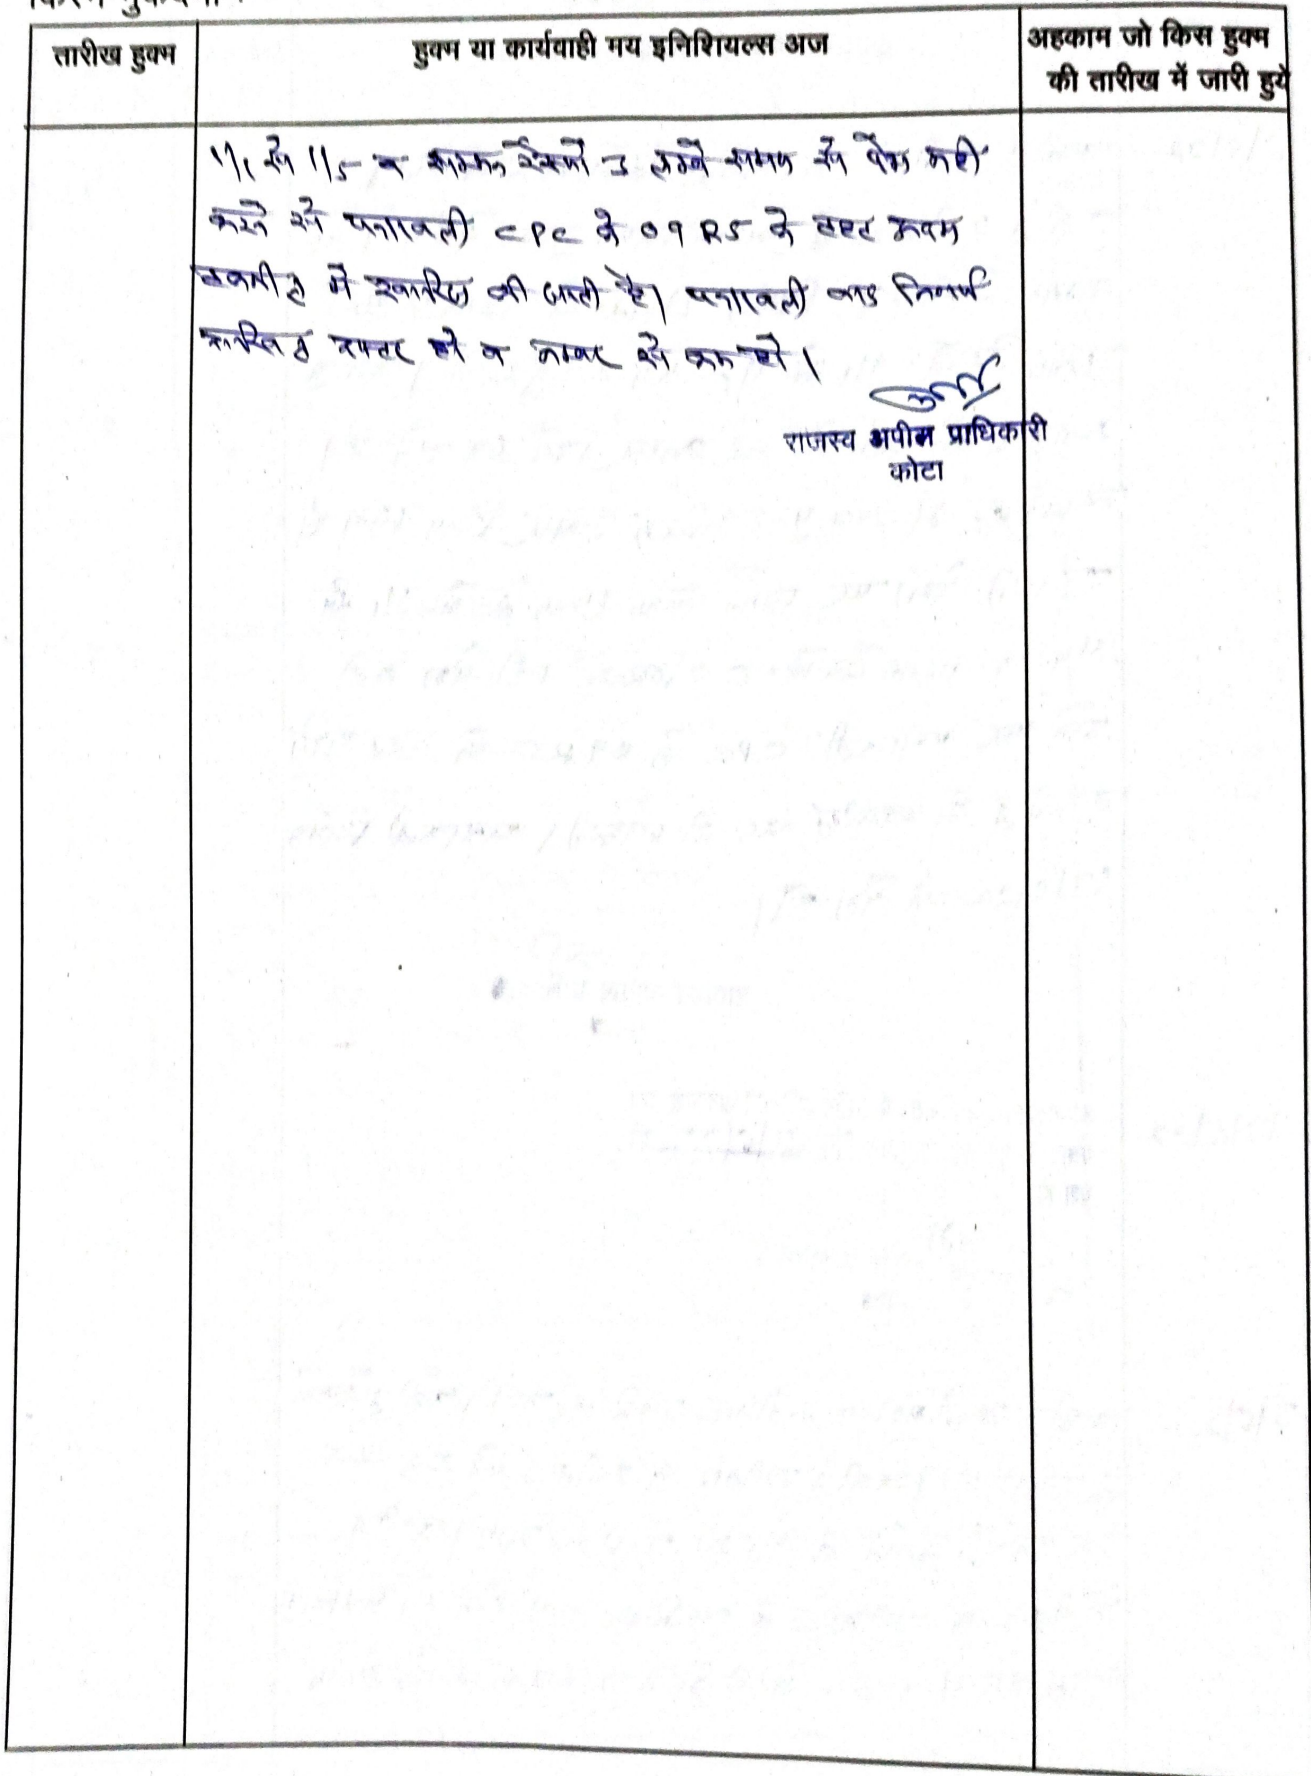 तारीख हुक्म
हुक्म या कार्यवाही मय इनिशियल्स अज
अहकाम जो किस हुक्म
की तारीख में जारी हुये
1/1 से 1/5 व सम्मन रेस्पो 3 लम्बे समय से पेश नही
करने से पत्रावली CPC के O9 R5 के तहत अदम
तकमील में खारिज की जाती है। पत्रावली बाद निर्णय
दाखिल दफ्तर हो व नम्बर से कम हो।
राजस्व अपील प्राधिकारी
कोटा